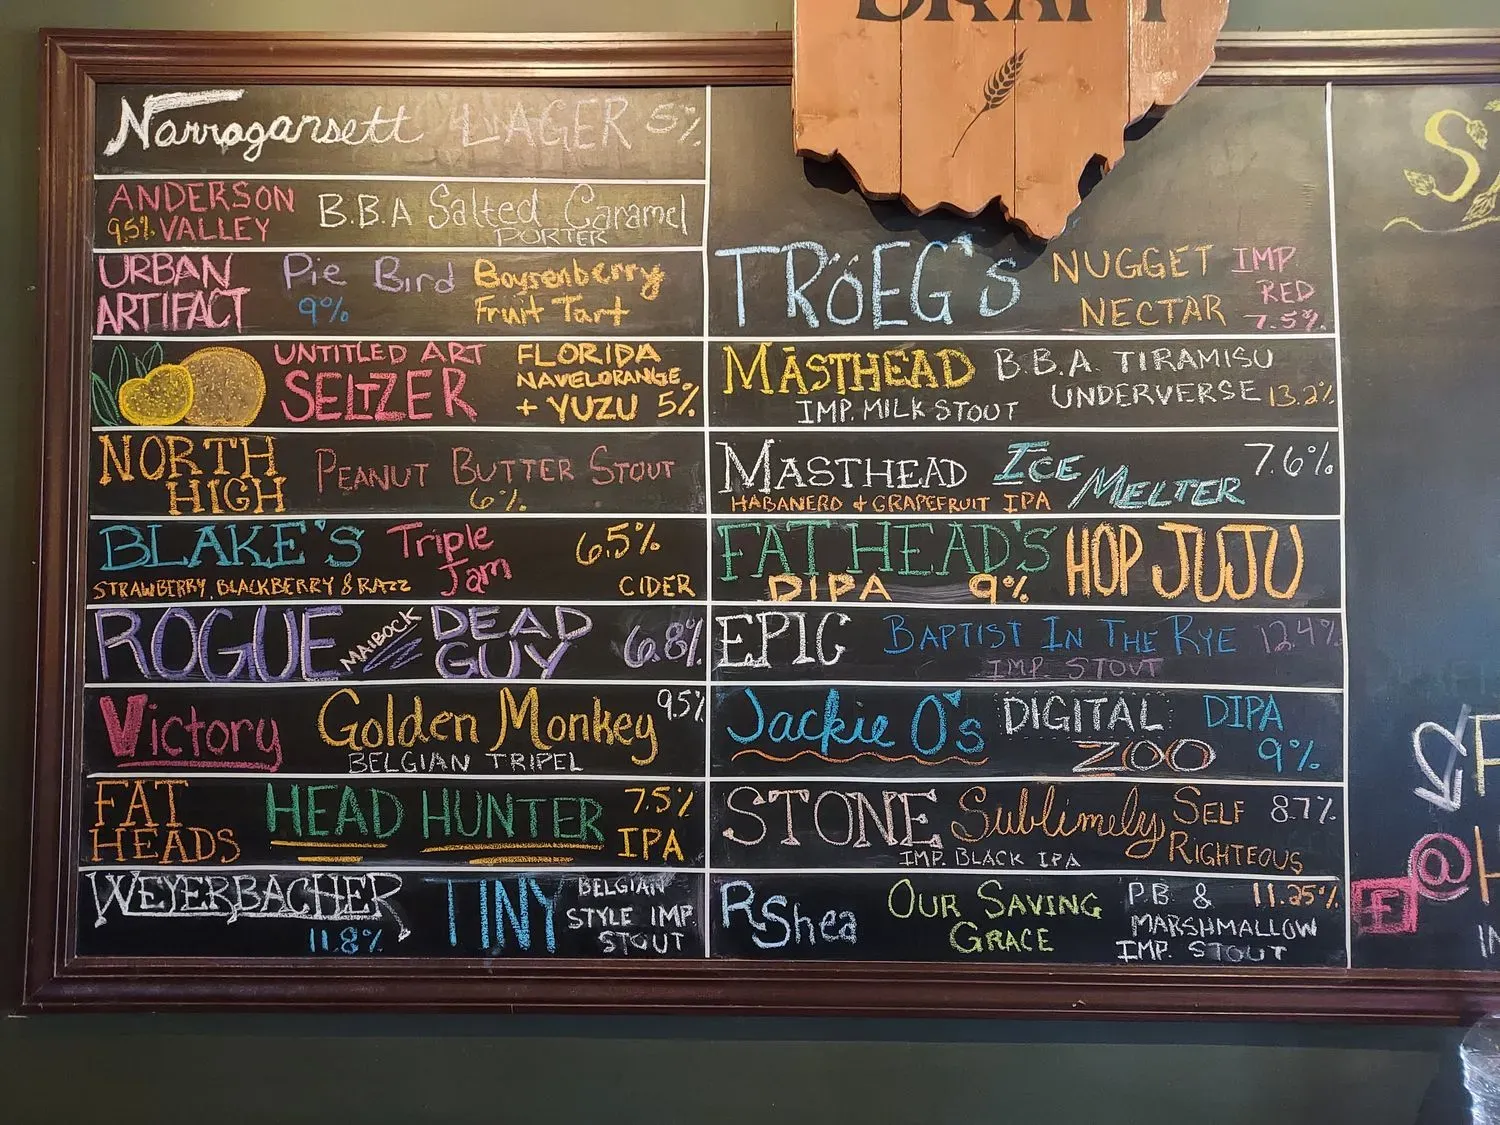 DRAFT
Narragansett LAGER 5%
ANDERSON VALLEY 9.5% B.B.A Salted Caramel
PORTER
URBAN ARTIFACT Pie Bird Boysenberry
9% Fruit Tart
UNTITLED ART SELTZER FLORIDA
NAVELORANGE
+ YUZU 5%
NORTH HIGH PEANUT BUTTER STOUT
6%
BLAKE'S Triple Jam 6.5%
STRAWBERRY, BLACKBERRY & RAZZ CIDER
ROGUE MAIBOCK DEAD GUY 6.8%
Victory Golden Monkey 9.5%
BELGIAN TRIPEL
FAT HEADS HEAD HUNTER 7.5%
IPA
WEYERBACHER TINY BELGIAN
STYLE IMP.
11.8% STOUT
TRÖEG'S NUGGET IMP
NECTAR RED
7.5%
MASTHEAD B.B.A. TIRAMISU
IMP. MILK STOUT UNDERVERSE 13.2%
MASTHEAD ICE MELTER 7.6%
HABANERO + GRAPEFRUIT IPA
FAT HEAD'S HOP JUJU
DIPA 9%
EPIC BAPTIST IN THE RYE 12.4%
IMP. STOUT
Jackie O's DIGITAL DIPA
ZOO 9%
STONE Sublimely SELF 8.7%
IMP. BLACK IPA RIGHTEOUS
R Shea OUR SAVING P.B. & 11.25%
GRACE MARSHMALLOW
IMP. STOUT
@